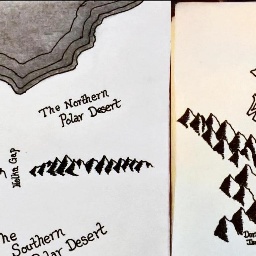 The Northern
Polar Desert
Gap
The
Southern
Polar Desert